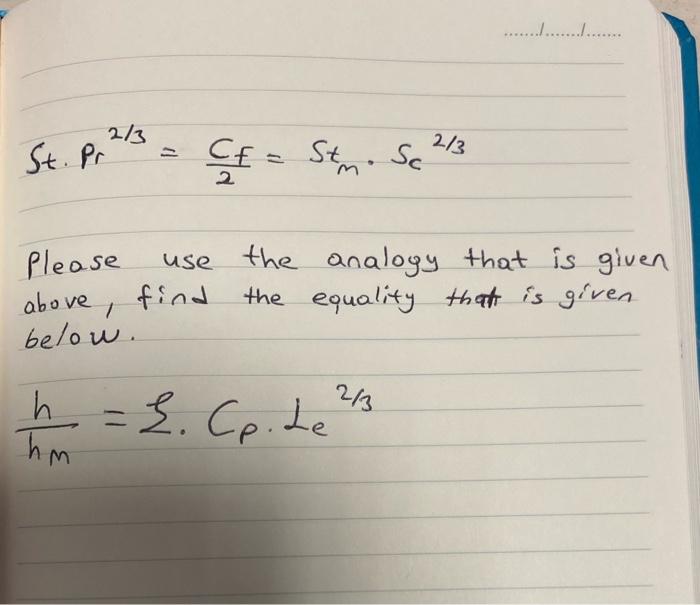 ......./......./.......
St. Pr^2/3 = Cf/2 = Stm. Sc^2/3
Please use the analogy that is given
above, find the equality that is given
below.
h/hm = ξ. Cp. Le^2/3